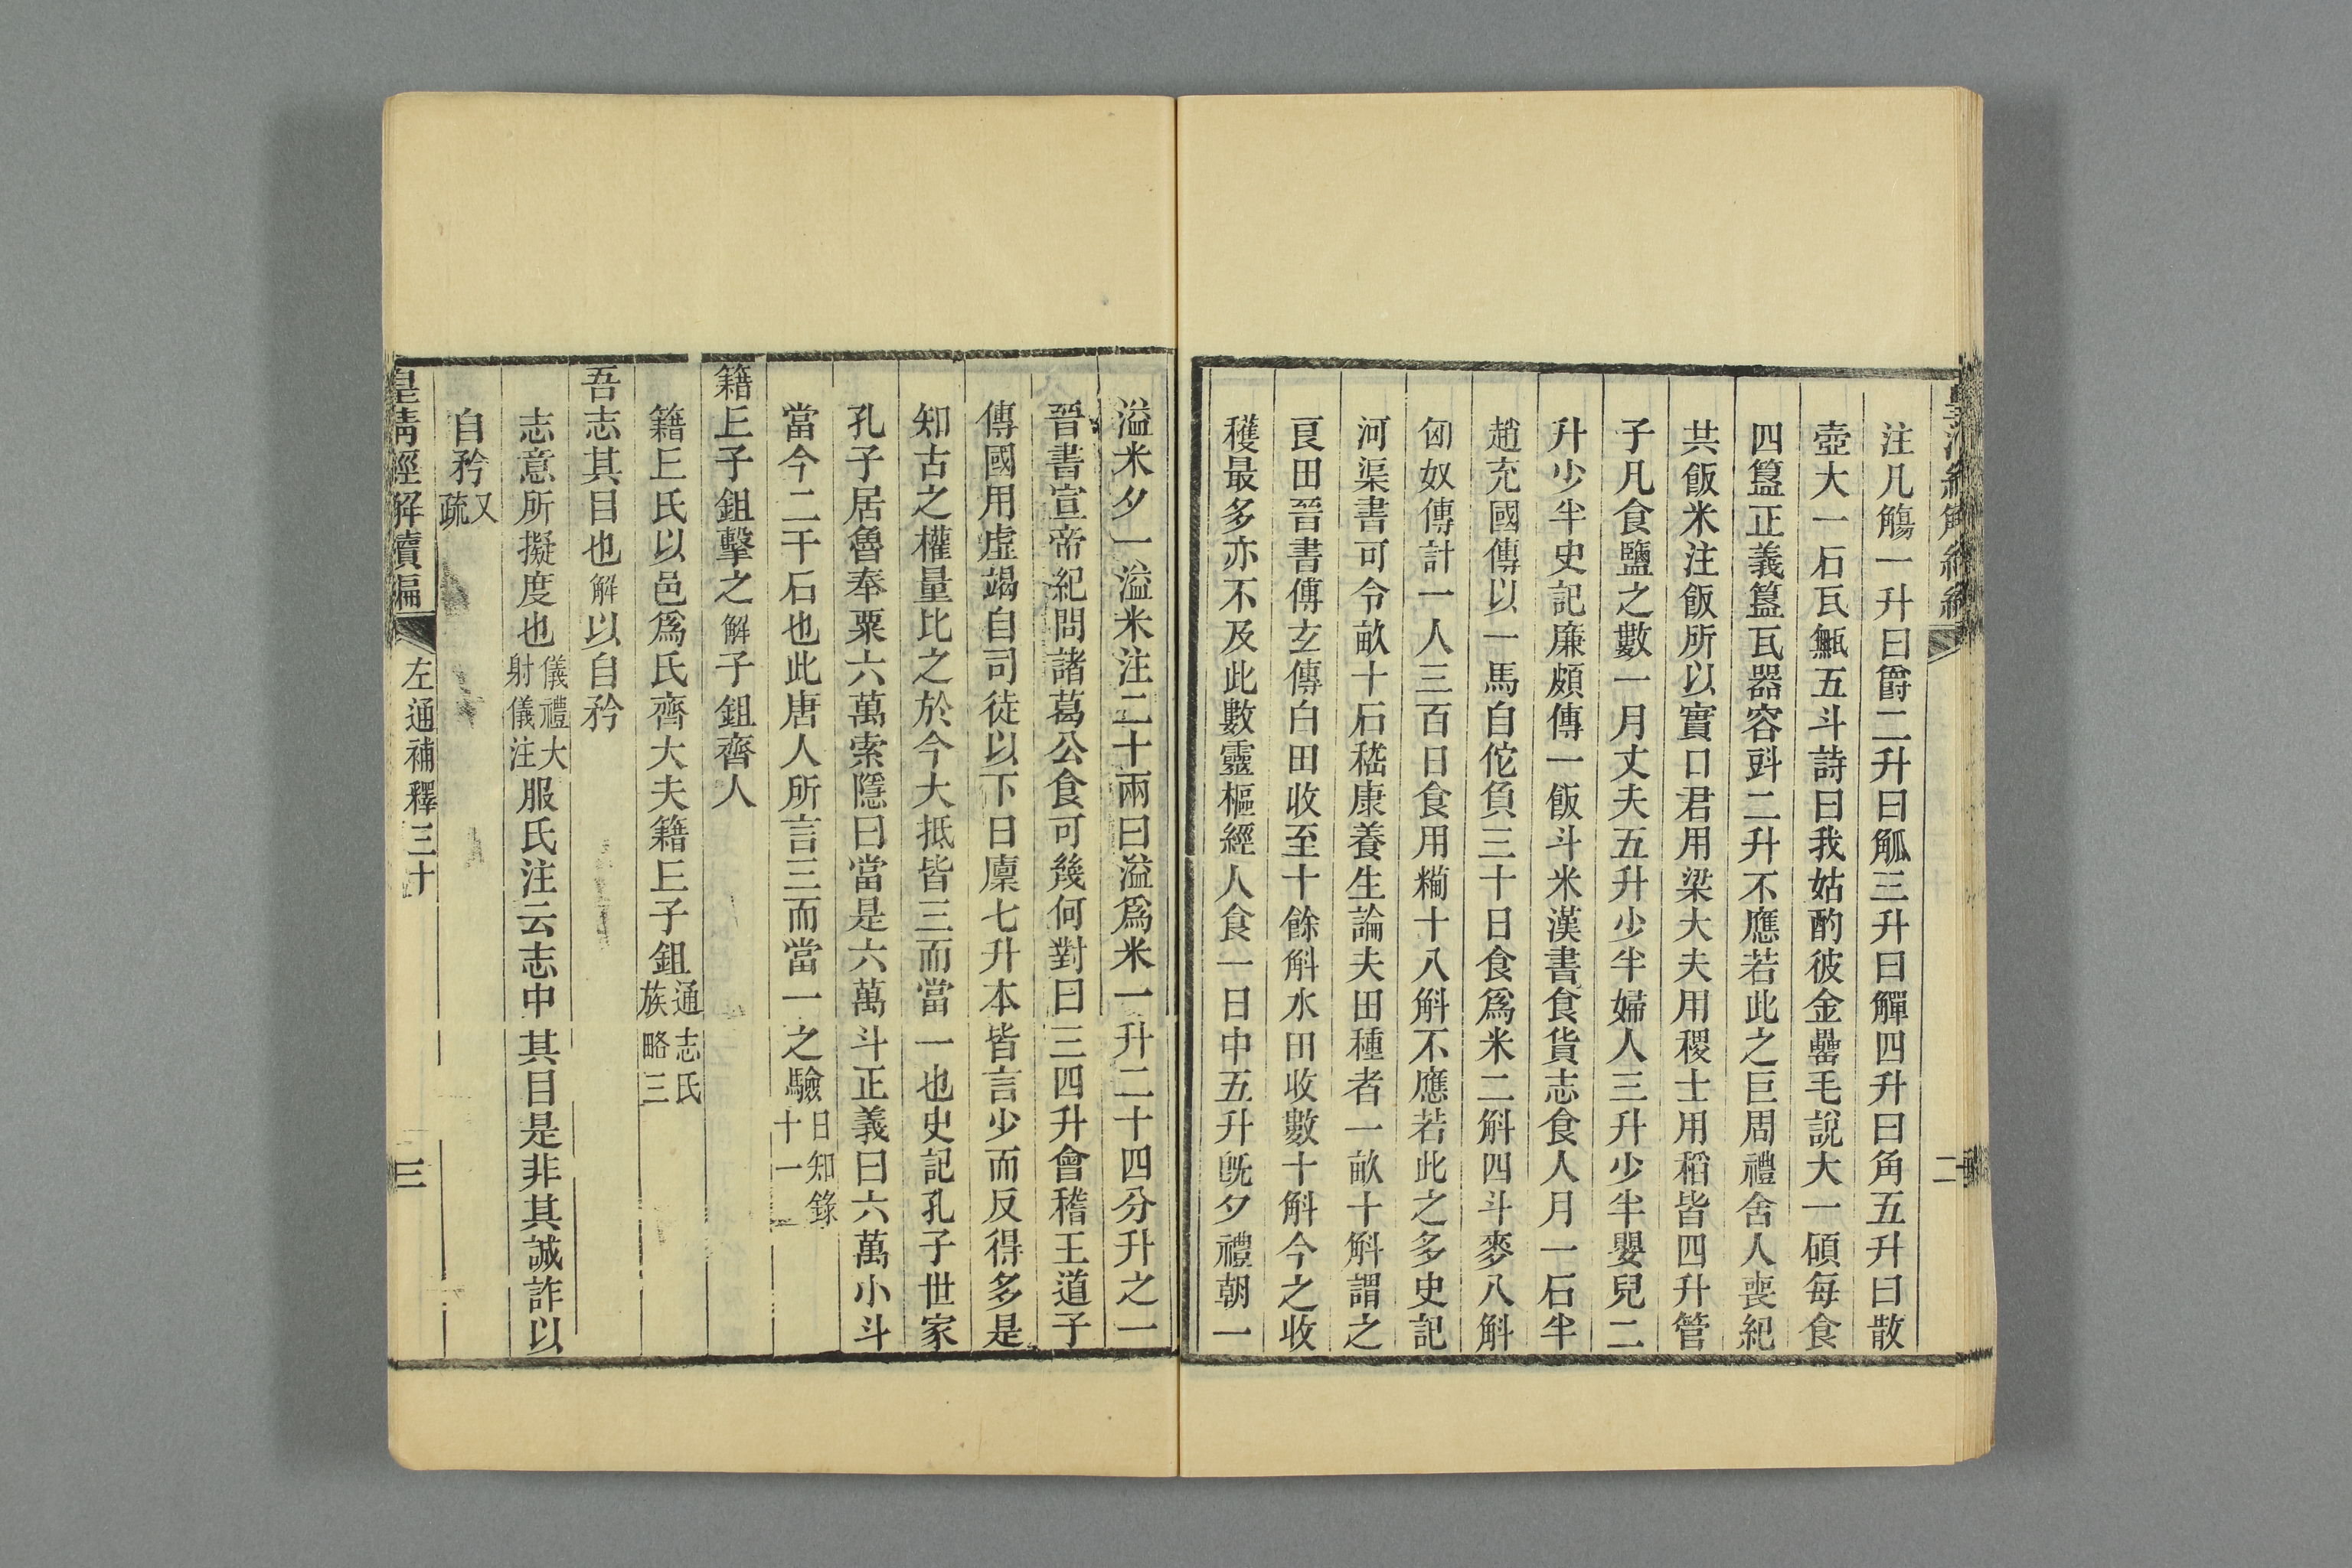 注凡觴一升曰爵二升曰觚三升曰觶四升曰角五升曰散
壺大一石瓦甒五斗詩曰我姑酌彼金罍毛說大一碩每食
四簋正義簋瓦器容㪷二升不應若此之巨周禮舍人喪紀
共飯米注飯所以實口君用梁大夫用稷士用稻皆四升管
子凡食鹽之數一月丈夫五升少半婦人三升少半嬰兒二
升少半史記廉頗傳一飯斗米漢書食貨志食人月一石半
趙充國傳以一馬自佗負三十日食爲米二斛四斗麥八斛
匈奴傳計一人三百日食用糒十八斛不應若此之多史記
河渠書可令畝十石嵇康養生論夫田種者一畝十斛謂之
良田晉書傅玄傳白田收至十餘斛水田收數十斛今之收
穫最多亦不及此數靈樞經人食一日中五升旣夕禮朝一
二
溢米夕一溢米注二十兩曰溢爲米一升二十四分升之一
晉書宣帝紀問諸葛公食可幾何對曰三四升會稽王道子
傳國用虛竭自司徒以下日廩七升本皆言少而反得多是
知古之權量比之於今大抵皆三而當一也史記孔子世家
孔子居魯奉粟六萬索隱曰當是六萬斗正義曰六萬小斗
當今二千石也此唐人所言三而當一之驗日知錄十一
籍丘子鉏擊之解子鉏齊人
籍丘氏以邑爲氏齊大夫籍丘子鉏通志氏族略三
吾志其目也解以自矜
志意所擬度也儀禮大射儀注服氏注云志中其目是非其誠詐以
自矜又疏
皇淸經解續編
左通補釋三十
三